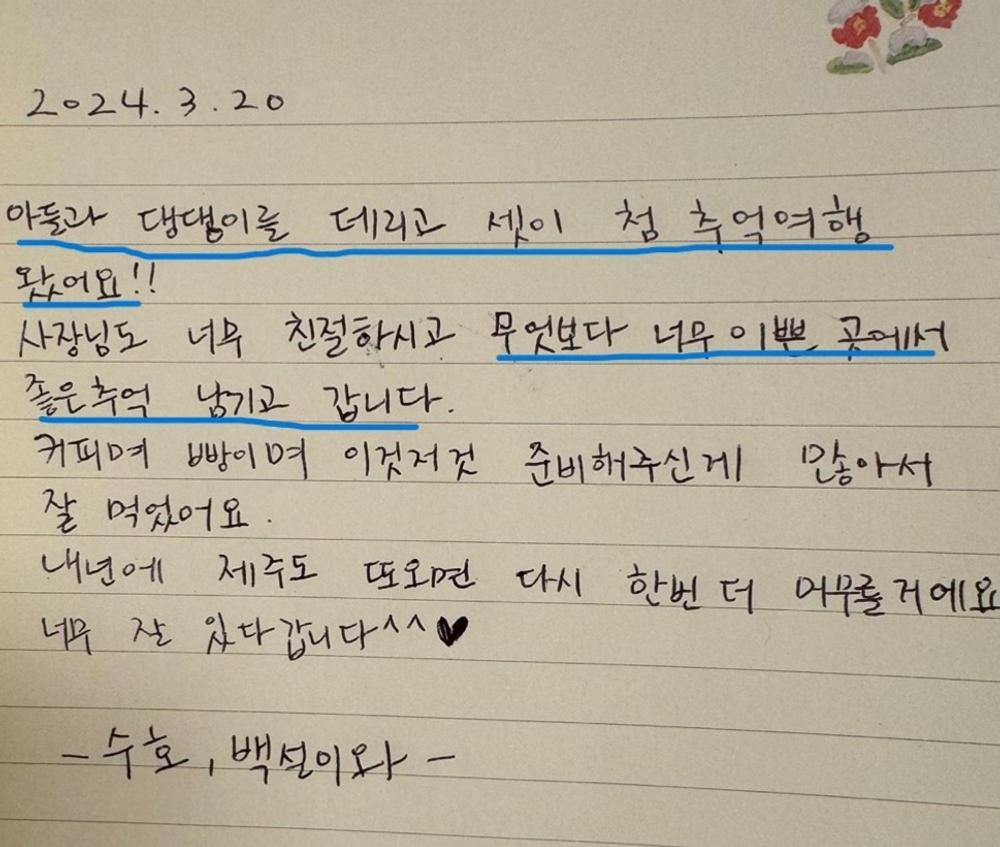 2024. 3. 20
아들과 댕댕이를 데리고 셋이 첨 추억여행
왔어요!!
사장님도 너무 친절하시고 무엇보다 너무 이쁜 곳에서
좋은추억 남기고 갑니다.
커피며 빵이며 이것저것 준비해주신게 많아서
잘 먹었어요.
내년에 제주도 또오면 다시 한번 더 머무를거에요
너무 잘 있다갑니다^^♥
- 수호, 백설이와 -